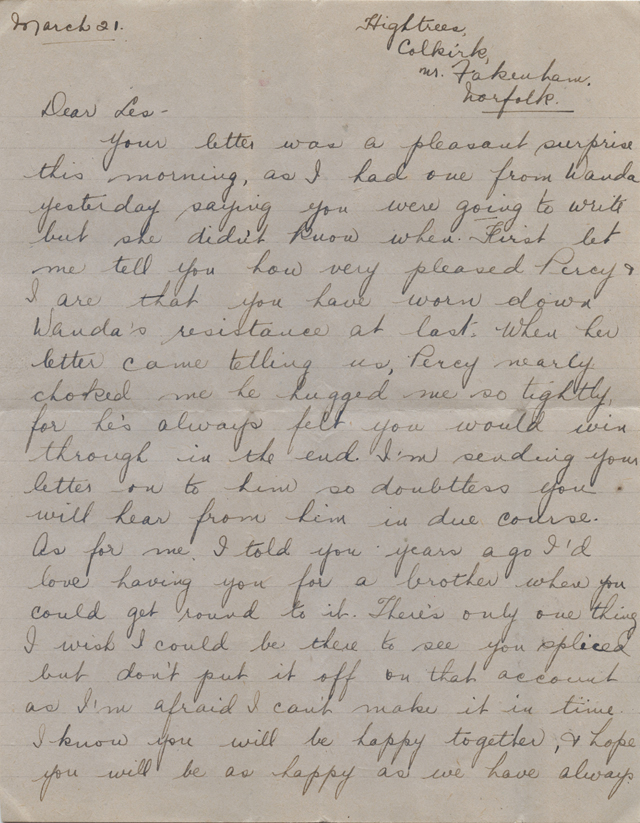 March 21.
Hightrees,
Colkirk,
nr. Fakenham.
Norfolk.
Dear Les -
Your letter was a pleasant surprise
this morning, as I had one from Wanda
yesterday saying you were going to write
but she didn't know when. First let
me tell you how very pleased Percy &
I are that you have worn down
Wanda's resistance at last. When her
letter came telling us, Percy nearly
choked me he hugged me so tightly,
for he's always felt you would win
through in the end. I'm sending your
letter on to him so doubtless you
will hear from him in due course.
As for me, I told you years ago I'd
love having you for a brother when you
could get round to it. There's only one thing
I wish I could be there to see you spliced
but don't put it off on that account
as I'm afraid I can't make it in time.
I know you will be happy together, & hope
you will be as happy as we have always